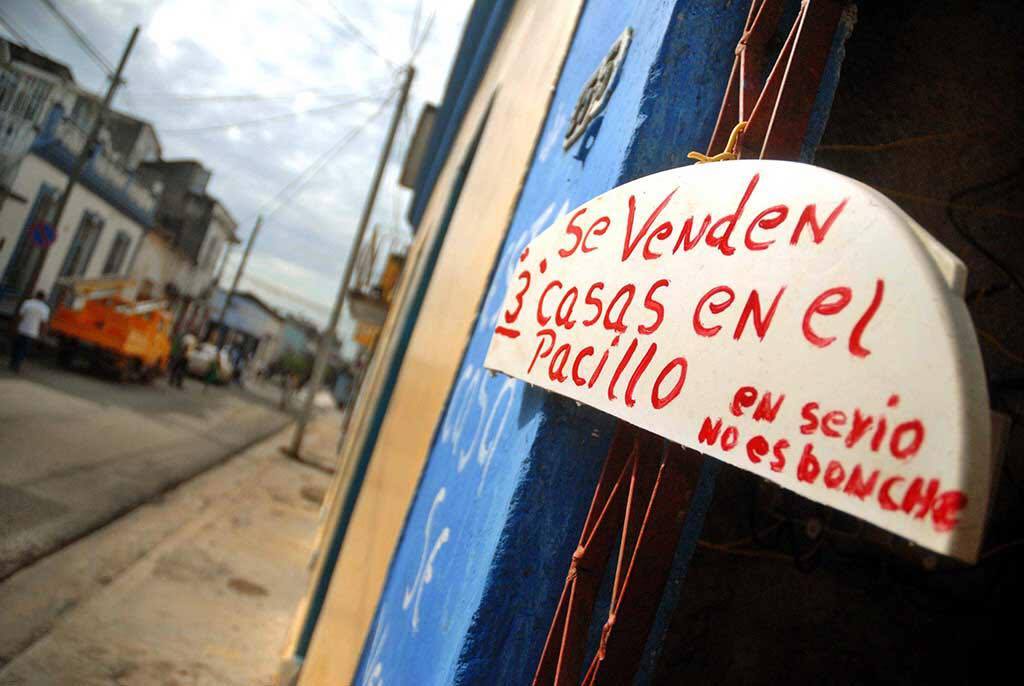 Se Venden
3 casas en el
Pacillo
en serio
No es boNCHe